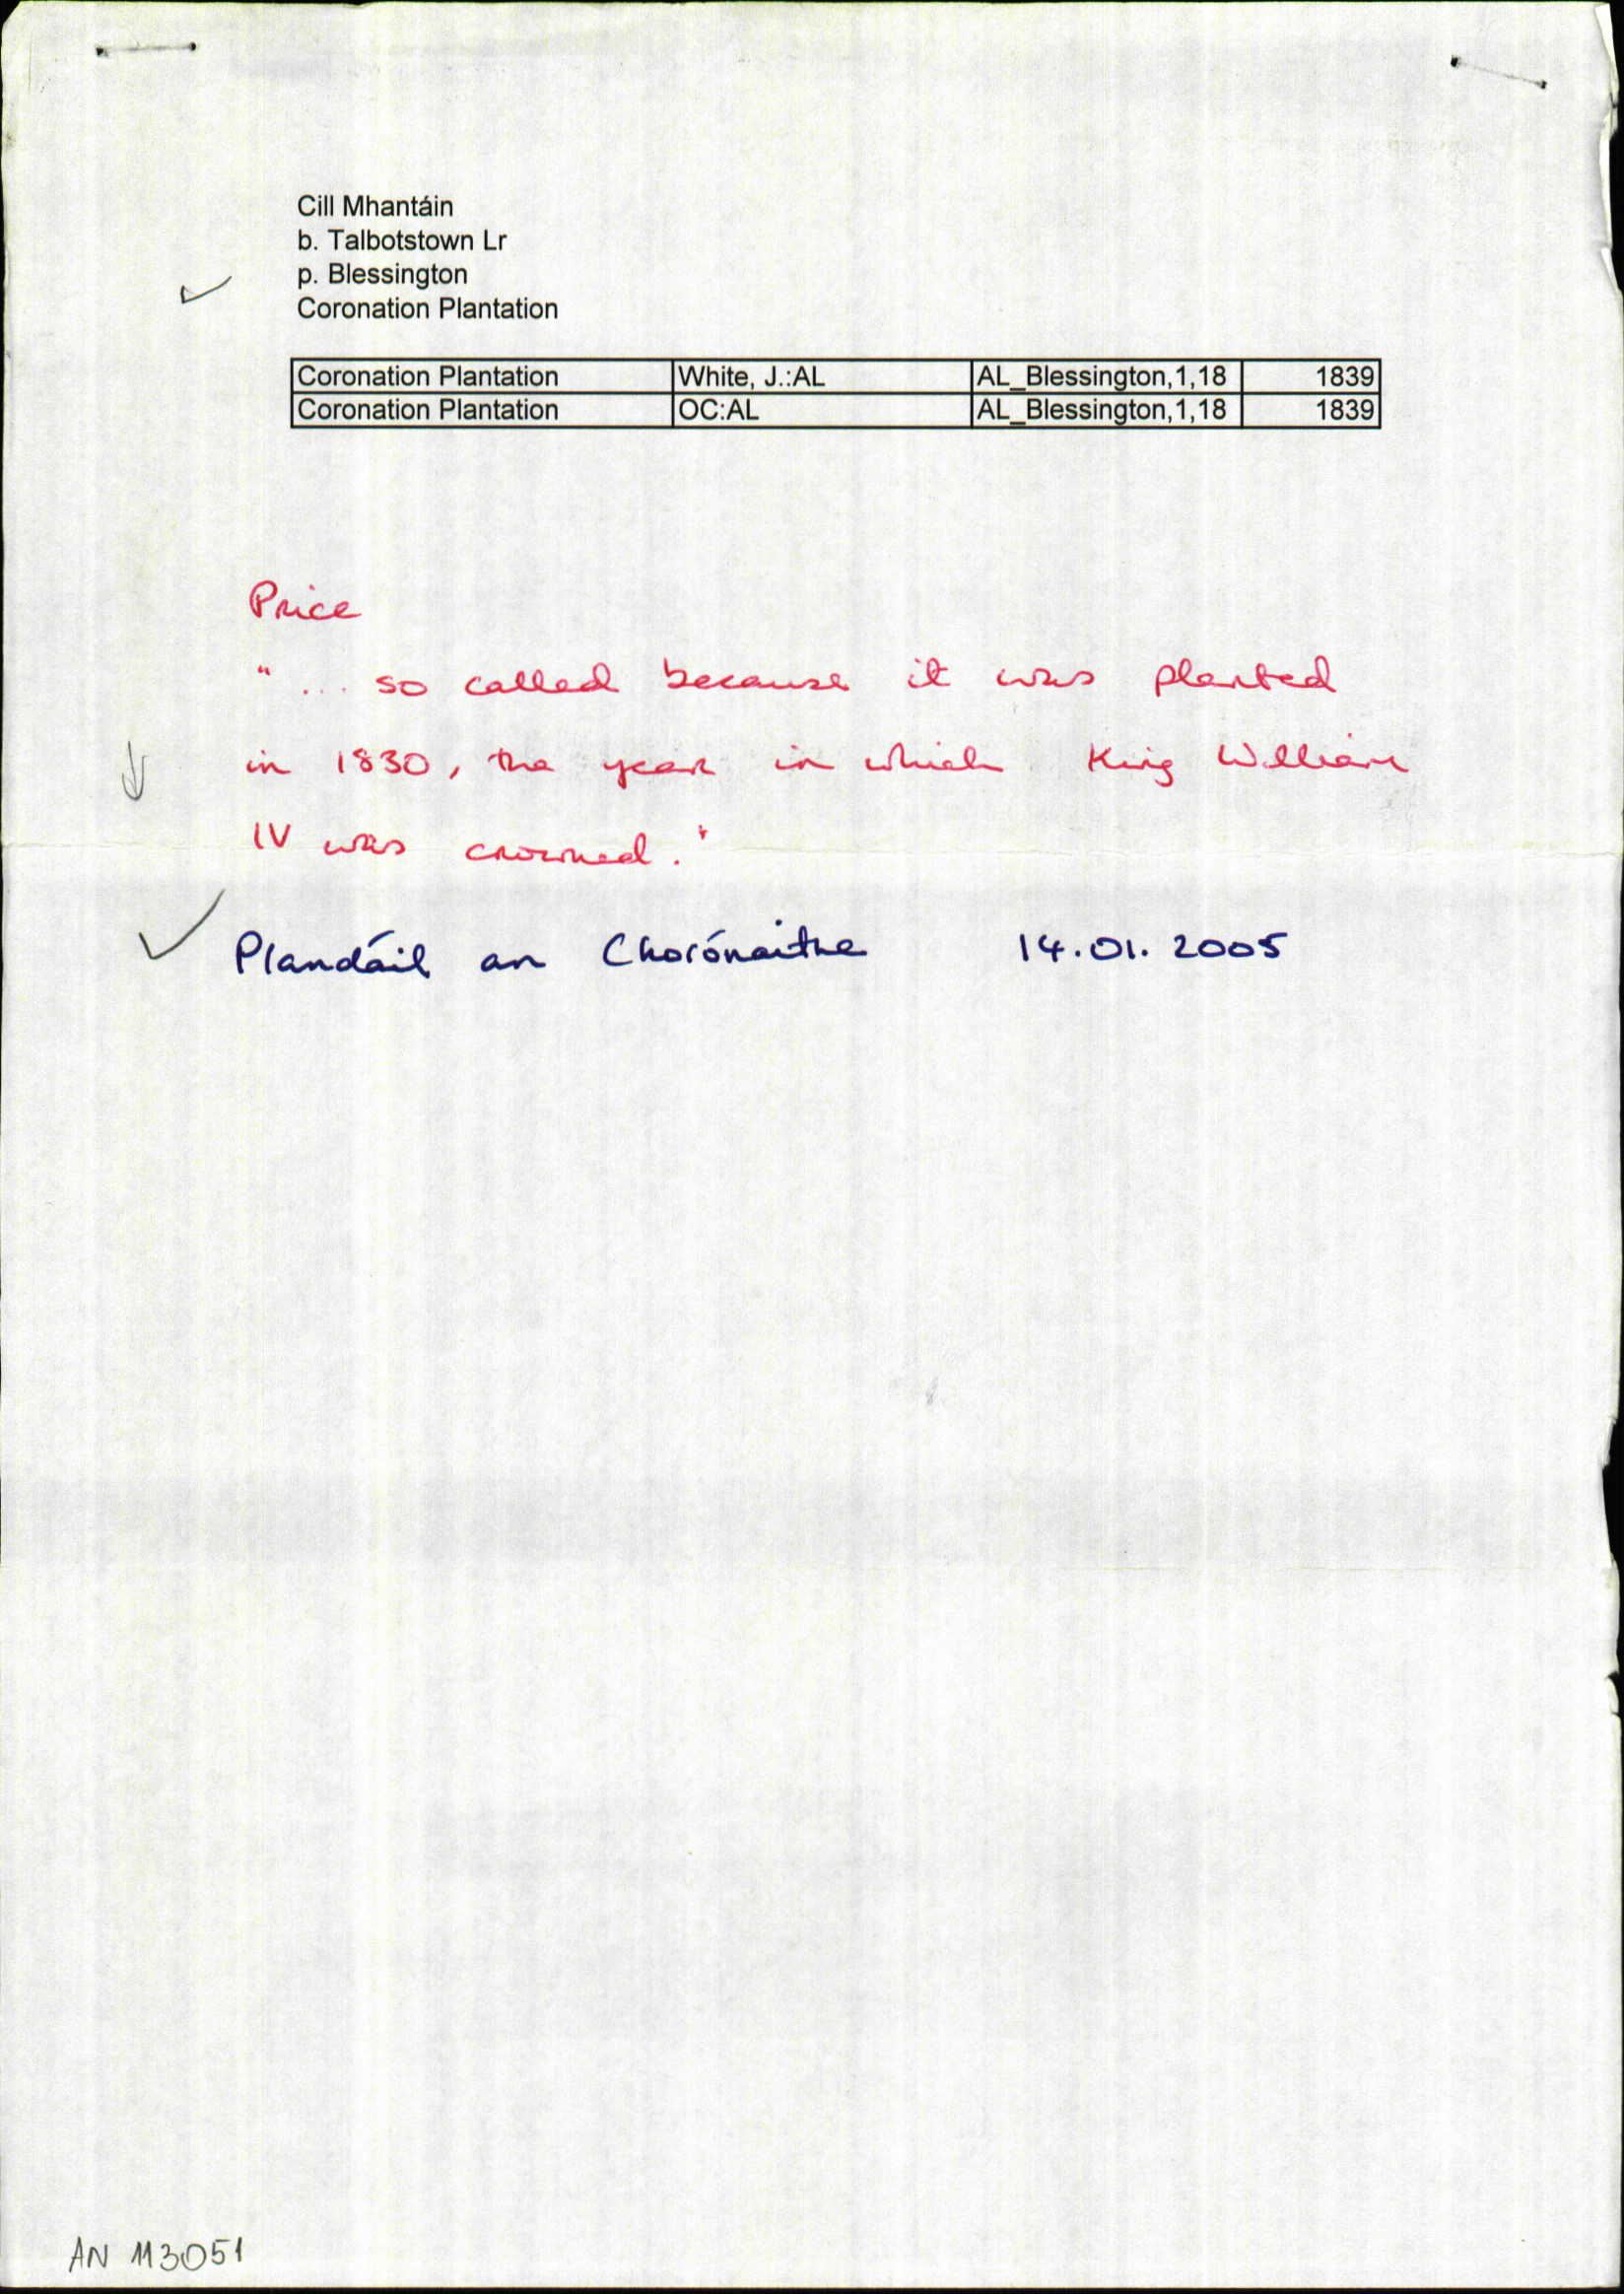 Cill Mhantáin
b. Talbotstown Lr
p. Blessington
Coronation Plantation
Coronation Plantation White, J.:AL AL_Blessington,1,18 1839
Coronation Plantation OC:AL AL_Blessington,1,18 1839
Price
"... so called because it was planted
in 1830, the year in which King William
IV was crowned."
Plandáil an Chorónaithe 14.01.2005
AN 113051